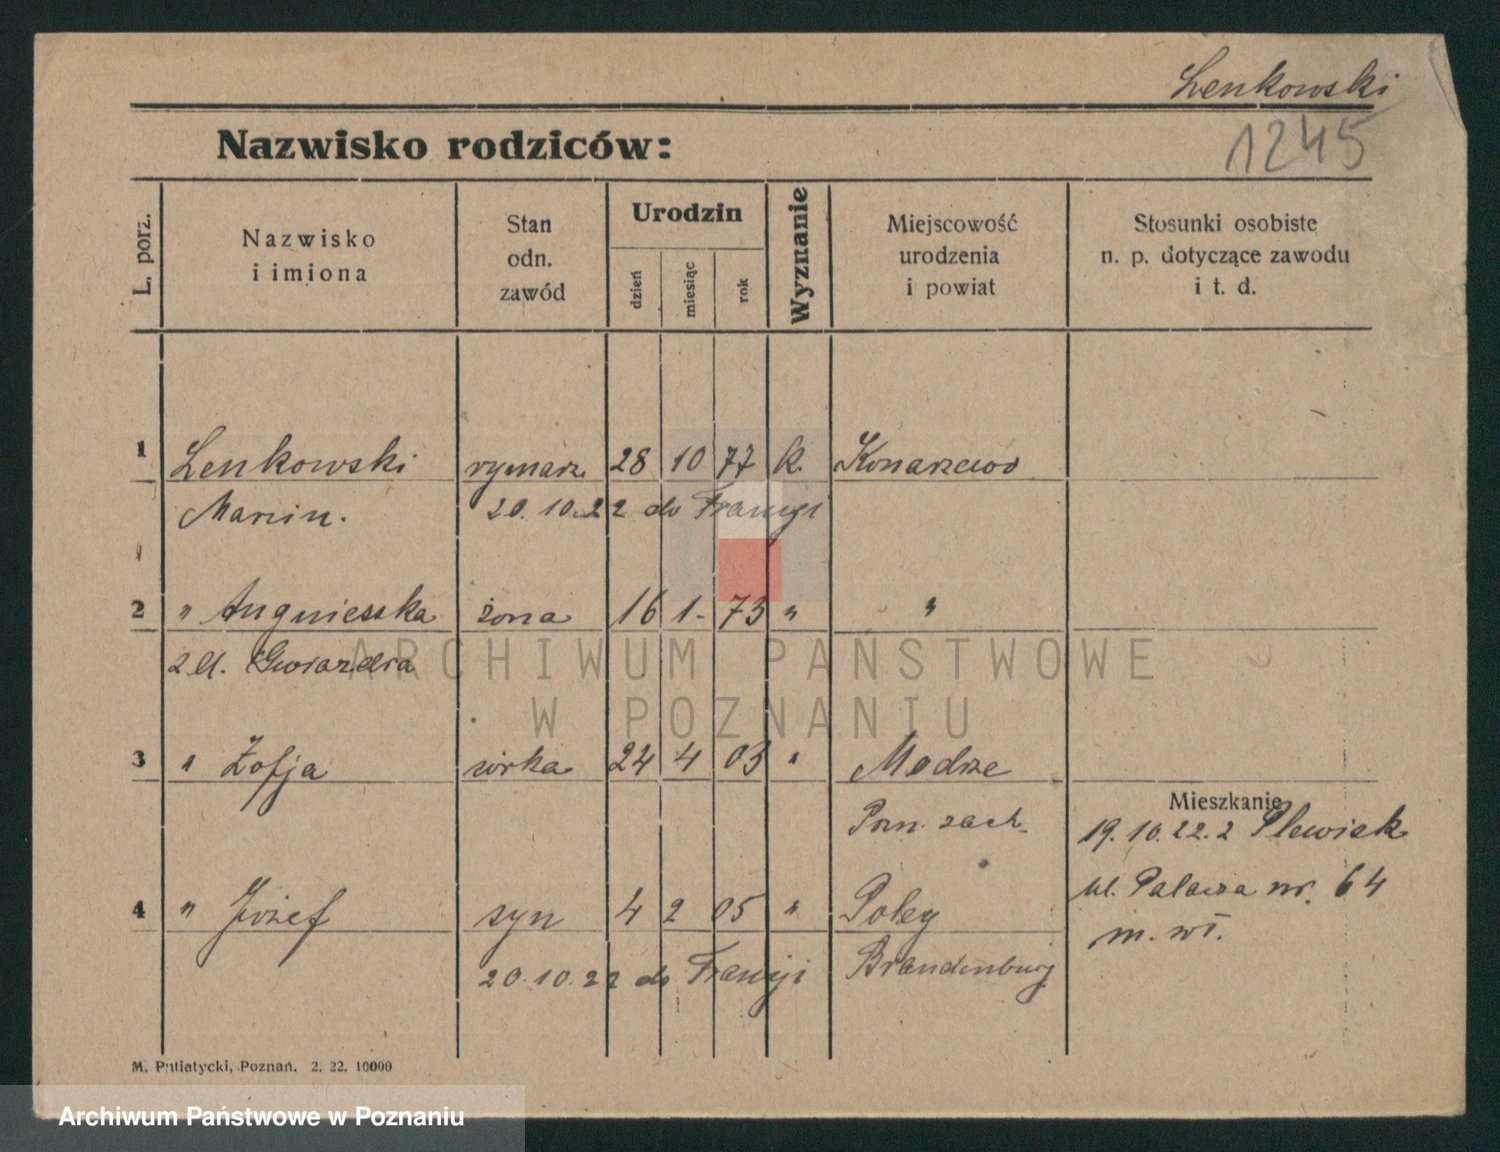 Lenkowski
1245
Nazwisko rodziców:
L. porz.
Nazwisko
i imiona
Stan
odn.
zawód
Urodzin
dzień
miesiąc
rok
Wyznanie
Miejscowość
urodzenia
i powiat
Stosunki osobiste
n. p. dotyczące zawodu
i t. d.
1 Lenkowski rymarz 28 10 77 k. Konarzewo
Marcin. 20.10.22 do Francji
2 " Angnieszka żona 16 1- 73 " "
z d. Gwiazda
3 " Zofja córka 24 4 03 " Modrze
Mieszkanie
Pozn. zach.
19.10.22. z Plewisk
ul. Palacza nr. 64
m. wł.
4 " Józef syn 4 2 05 "
Brandenburg
20.10.22 do Francji
M. Putiatycki, Poznań. 2. 22. 10000
ARCHIWUM PAŃSTWOWE
W POZNANIU
Archiwum Państwowe w Poznaniu